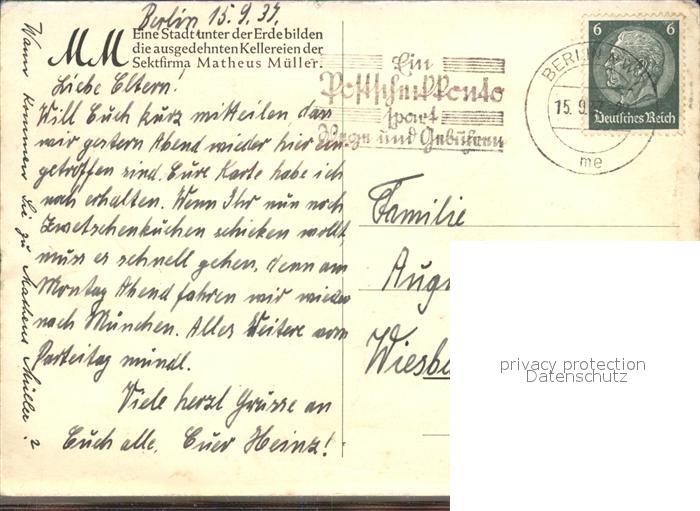 Berlin 15.9.37.
MM
Eine Stadt unter der Erde bilden
die ausgedehnten Kellereien der
Sektfirma Matheus Müller.
Liebe Eltern!
Will Euch kurz mitteilen, dass
wir gestern Abend wieder hier ein-
getroffen sind. Eure Karte habe ich
noch erhalten. Wenn Ihr nun noch
Zwetschenkuchen schicken wollt,
muss es schnell gehen, denn am
Montag Abend fahren wir wieder
nach München. Alles Weitere vom
Parteitag mündl.
Viele herzl Grüsse an
Euch alle. Euer Heinz!
Wann kommen Sie zu Matheus Müller?
Ein
Postscheckkonto
spart
Wege und Gebühren
BERLIN
15.9.37
me
6 6
Deutsches Reich
Familie
Aug
Wiesb
privacy protection
Datenschutz